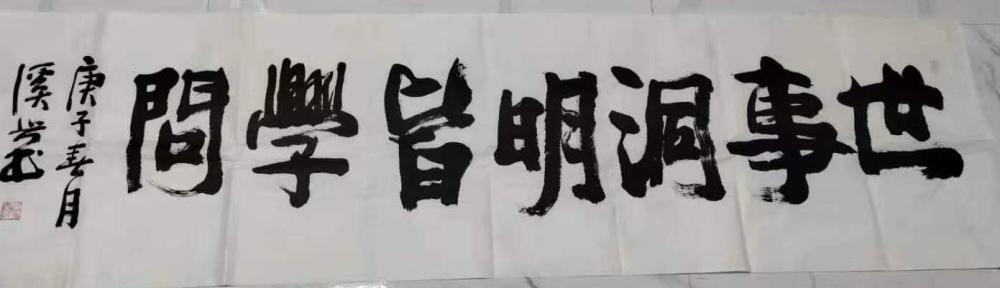 世事洞明皆學問
庚子春月
溪